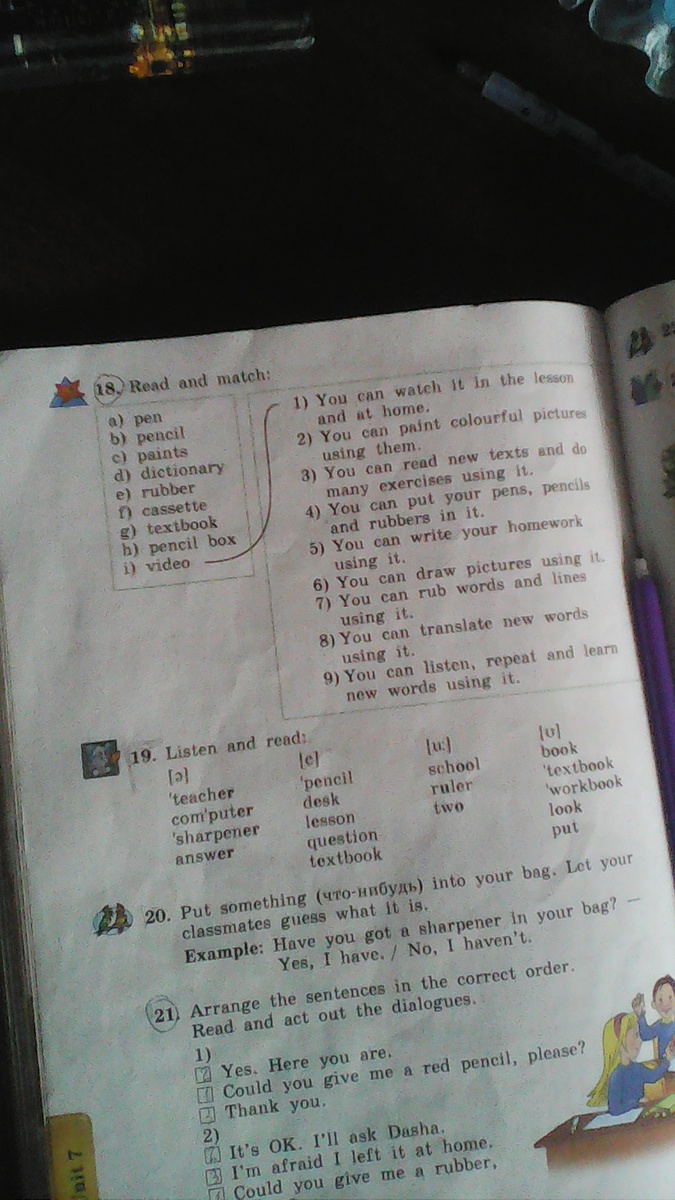 18. Read and match:
a) pen
b) pencil
c) paints
d) dictionary
e) rubber
f) cassette
g) textbook
h) pencil box
i) video
1) You can watch it in the lesson
and at home.
2) You can paint colourful pictures
using them.
3) You can read new texts and do
many exercises using it.
4) You can put your pens, pencils
and rubbers in it.
5) You can write your homework
using it.
6) You can draw pictures using it.
7) You can rub words and lines
using it.
8) You can translate new words
using it.
9) You can listen, repeat and learn
new words using it.
19. Listen and read:
[ə]
'teacher
com'puter
'sharpener
answer
[e]
'pencil
desk
lesson
question
textbook
[u:]
school
ruler
two
[ʊ]
book
'textbook
'workbook
look
put
20. Put something (что-нибудь) into your bag. Let your
classmates guess what it is.
Example: Have you got a sharpener in your bag? —
Yes, I have. / No, I haven't.
21. Arrange the sentences in the correct order.
Read and act out the dialogues.
1)
Yes. Here you are.
1 Could you give me a red pencil, please?
Thank you.
2)
2 It's OK. I'll ask Dasha.
3 I'm afraid I left it at home.
1 Could you give me a rubber,
Unit 7